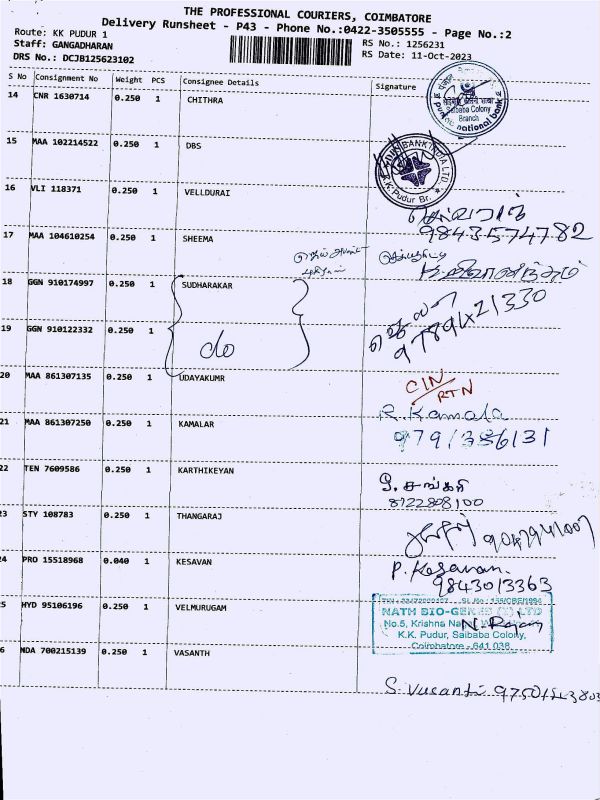 THE PROFESSIONAL COURIERS, COIMBATORE
Delivery Runsheet - P43 - Phone No.:0422-3505555 - Page No.:2
Route: KK PUDUR 1
Staff: GANGADHARAN
RS No.: 1256231
DRS No.: DCJB125623102
RS Date: 11-Oct-2023
S No Consignment No Weight PCS Consignee Details Signature
14 CNR 1630714 0.250 1 CHITHRA
Saibaba Colony
Branch
Punjab national bank
15 MAA 102214522 0.250 1 DBS
BANK INDIA LTD.
K.K. Pudur Br.
16 VLI 118371 0.250 1 VELLDURAI
9843574782
17 MAA 104610254 0.250 1 SHEEMA
18 GGN 910174997 0.250 1 SUDHARAKAR
19 GGN 910122332 0.250 1
do
20 MAA 861307135 0.250 1 UDAYAKUMR
CIN/RTN
R. Kamala
21 MAA 861307250 0.250 1 KAMALAR
9791386131
22 TEN 7609586 0.250 1 KARTHIKEYAN
8122808100
23 STY 108783 0.250 1 THANGARAJ
24 PRO 15518968 0.040 1 KESAVAN
P. Kesavan.
9843013363
25 HYD 95106196 0.250 1 VELMURUGAM
NATH BIO-GENES (I) LTD
No.5, Krishna
N. Rajan
K.K. Pudur, Saibaba Colony,
Coimbatore - 641 038
26 MDA 700215139 0.250 1 VASANTH
S. Vusanti